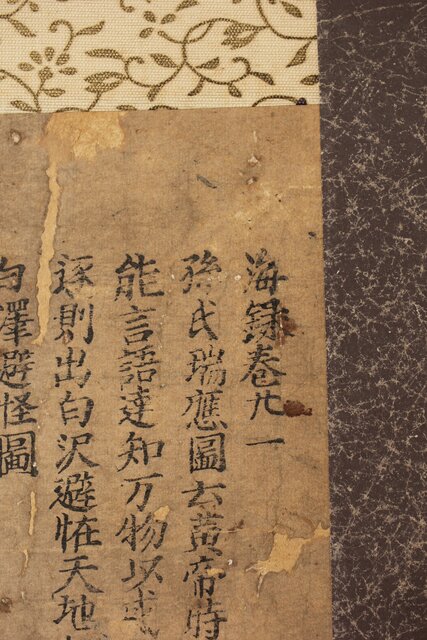 海録巻卅一
孫氏瑞應圖云黄帝時
能言語達知万物以戒
逐則出白沢避恠天地
白澤避怪圖